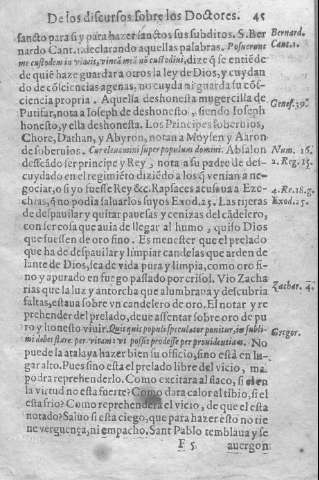 De los discursos sobre los Doctores. 45
sancto para si y para hazer sanctos sus subditos. S. Ber Bernard.
nardo Cant.1. declarando aquellas palabras. Posuerunt Cant.1.
me custodem in vineis, vineã meã nõ custodiui, dize q̃ se entiẽde
de quiẽ haze guardar a otros la ley de Dios, y cuydan
do de cõsciencias agenas, no cuyda ni guarda su cõs-
ciencia propria. Aquella deshonesta mugercilla de Genes.39.
Putifar, nota a Ioseph de deshonesto, siendo Ioseph
honesto, y ella deshonesta. Los Principes soberuios,
Chore, Dathan, y Abyron, notan a Moysen y Aaron
de soberuios. Cur eleuamini super populum domini. Absalon Num. 16.
desseãdo ser principe y Rey, nota a su padre de des- 2. Reg. 15.
cuydado en el regimiẽto diziẽdo a los q̃ venian a ne-
gociar, o si yo fuesse Rey &c. Rapsaces acusaua a Eze- 4. Re.18.g.
chias, q̃ no podia saluar los suyos Exod.25. Las tijeras Exod.25.
de despauilar y quitar pauesas y cenizas del cãdelero,
con ser cosa que auia de llegar al humo, quiso Dios
que fuessen de oro fino. Es menester que el prelado
que ha de despauilar y limpiar candelas que arden de
lante de Dios, sea de vida pura y limpia, como oro fi-
no y apurado en fuego passado por crisol. Vio Zacha
rias que la luz y antorcha que alumbraua y descubria Zachar. 4.
faltas, estaua sobre vn candelero de oro. El notar y re
prehender del prelado, deue assentar sobre oro de pu
ro y honesto viuir. Quisquis populi speculator ponitur, in subli
mi debet stare per vitam: vt possit prodesse per prouidentiam. No Gregor.
puede la atalaya hazer bien su officio, sino està en lu-
gar alto. Pues sino esta el prelado libre del vicio, ma.
podra reprehenderlo. Como excitara al flaco, si el en
la virtud no esta fuerte? Como dara calor al tibio, si el
esta frio? Como reprehendera el vicio, de que el esta
notado? Saluo si esta ciego, que para hazer esto no tie
ne verguença, ni empacho. Sant Pablo temblaua y se
F 5. auergon-